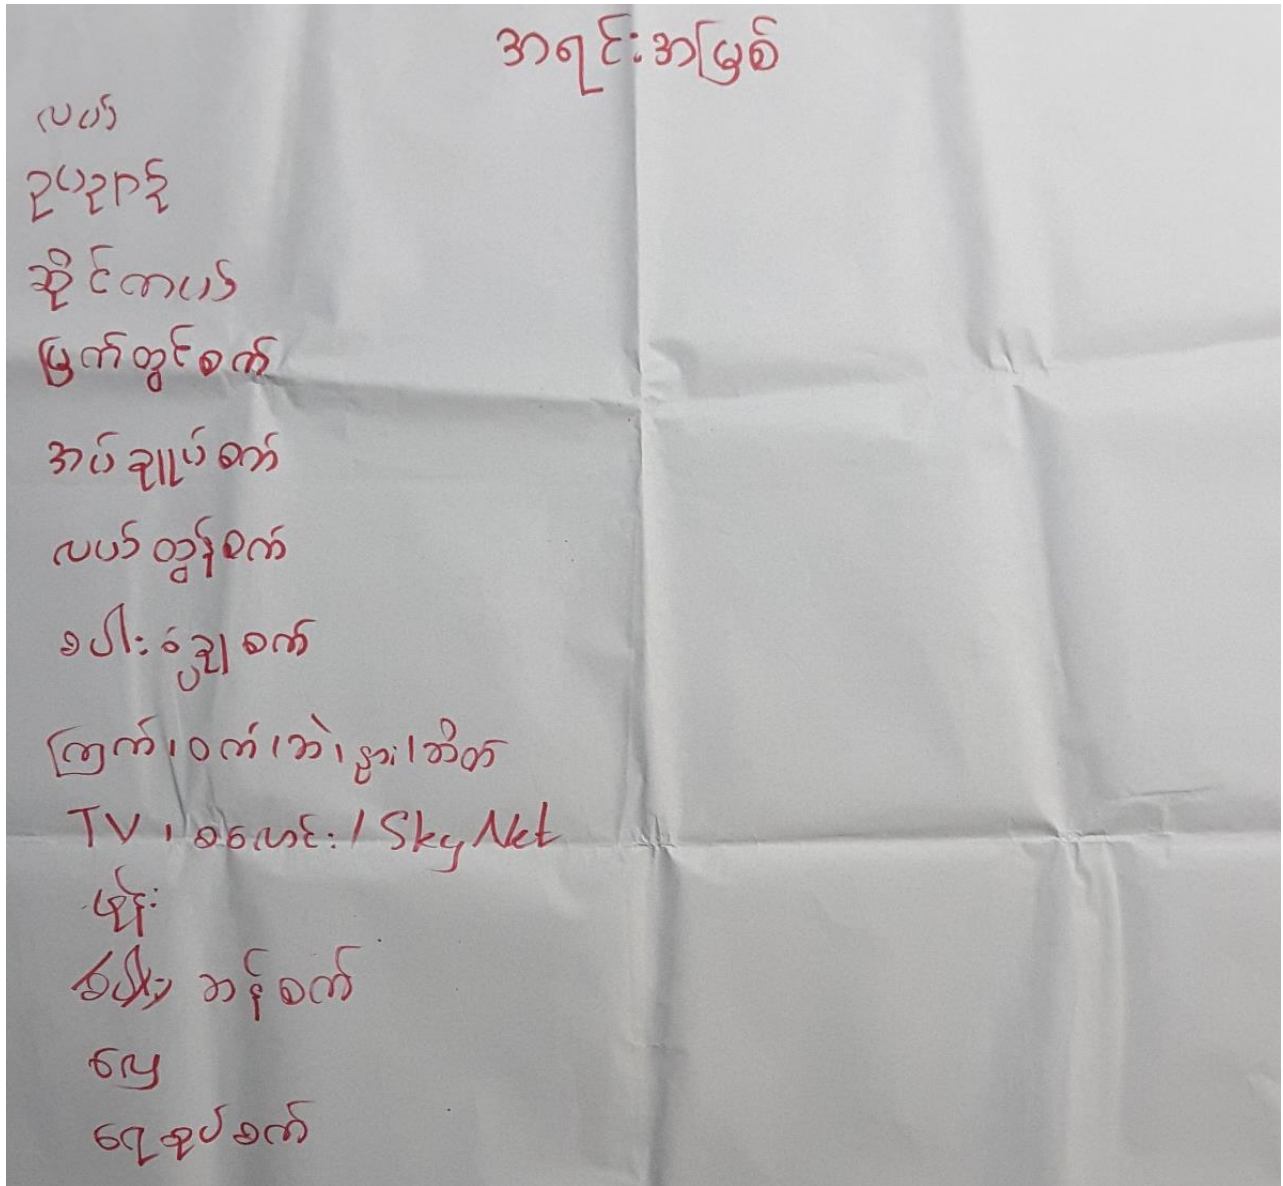 အရင်းအမြစ်
လယ်
ဥယျာဉ်
ဆိုင်ကယ်
မြက်တွင်စက်
အပ်ချုပ်စက်
လယ်ထွန်စက်
စပါး ခြွေစက်
ကြက်၊ ဝက်၊ ဘဲ၊ နွား၊ ဆိတ်
TV ၊ စလောင်း / Sky Net
ဖုန်း
ဆန်စက်
လှေ
ရေစုပ်စက်